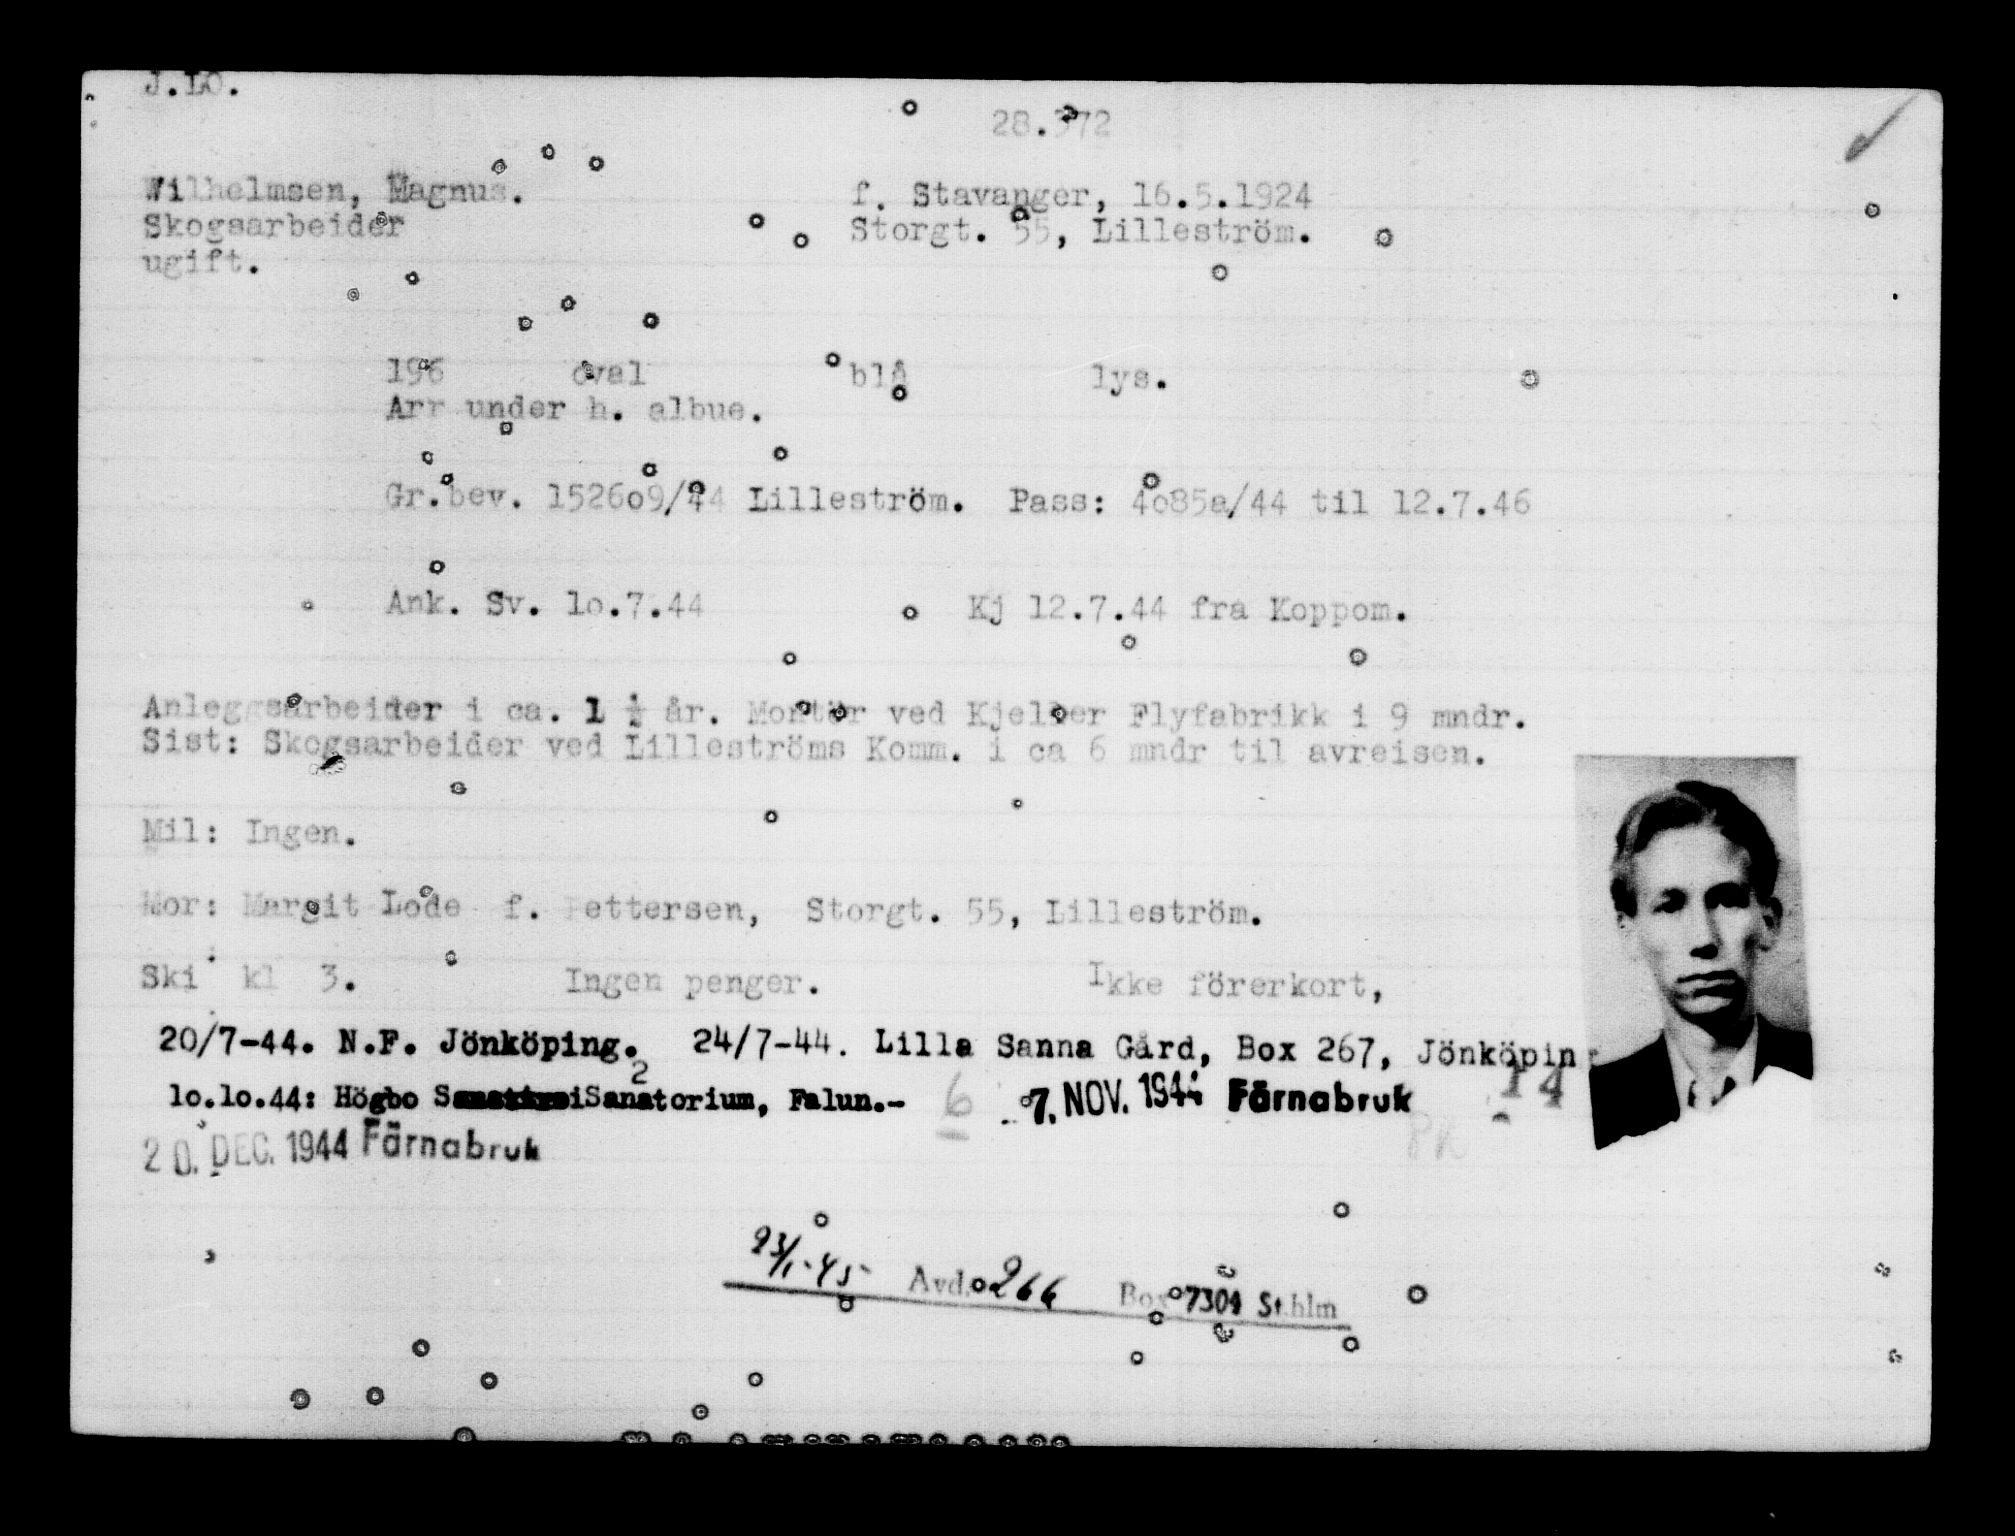 J.LO.
28.372
Wilhelmsen, Magnus. f. Stavanger, 16.5.1924
Skogsarbeider Storgt. 55, Lilleström.
ugift.
196 oval blå lys.
Arr under h. albue.
Gr.bev. 1526o9/44 Lilleström. Pass: 4o85a/44 til 12.7.46
Ank. Sv. lo.7.44 Kj 12.7.44 fra Koppom.
Anleggsarbeider i ca. 1 ½ år. Montör ved Kjeller Flyfabrikk i 9 mndr.
Sist: Skogsarbeider ved Lilleströms Komm. i ca 6 mndr til avreisen.
Mil: Ingen.
Mor: Margit Lode f. Pettersen, Storgt. 55, Lilleström.
Ski kl 3. Ingen penger. Ikke förerkort,
20/7-44. N.F. Jönköping. 24/7-44. Lilla Sanna Gård, Box 267, Jönköping
2
lo.lo.44: Högbo Sanatorium, Falun.- 6 7. NOV. 1944 Färnabruk 14
20. DEC. 1944 Färnabruk
23/1-45 Avd. 266 Box 7304 Sthlm